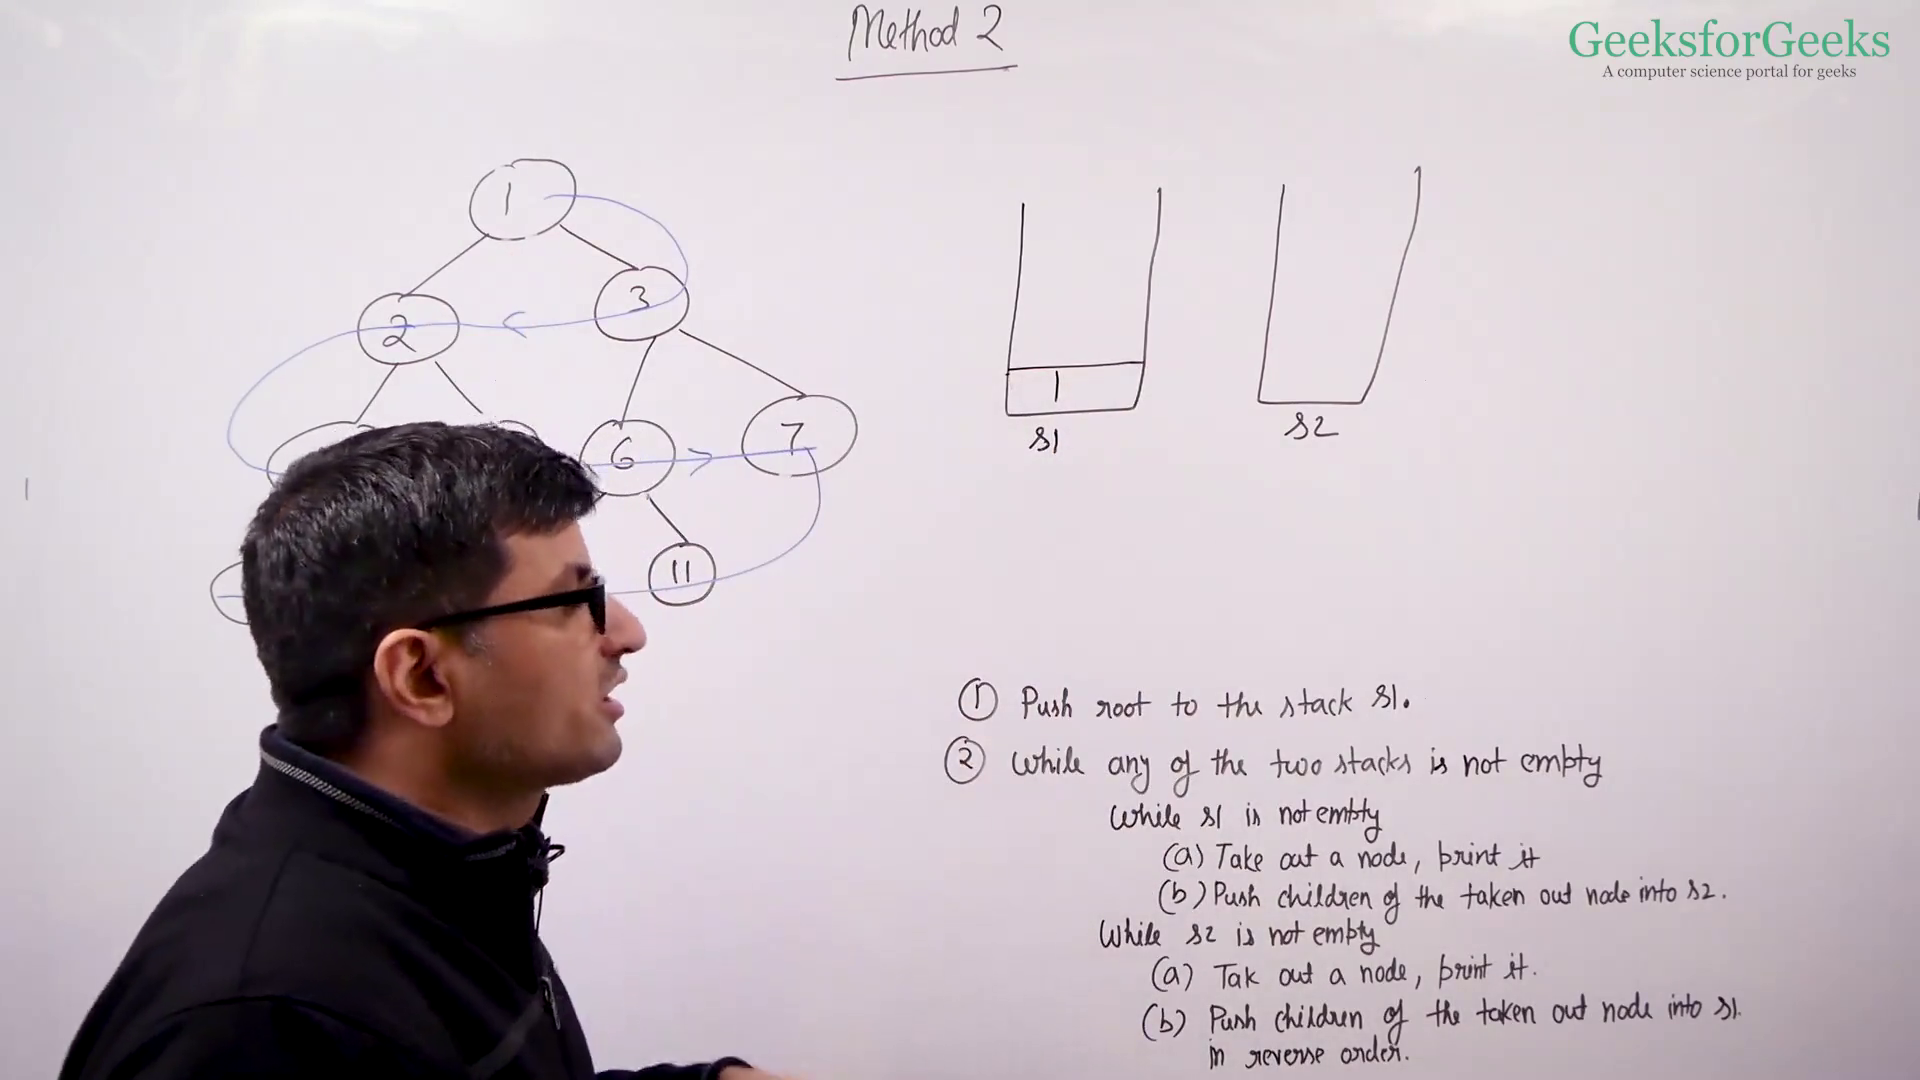 Method 2
GeeksforGeeks
A computer science portal for geeks
1
2
3
6
7
11
1
s1
s2
① Push root to the stack s1.
② While any of the two stacks is not empty
While s1 is not empty
(a) Take out a node, print it
(b) Push children of the taken out node into s2.
While s2 is not empty
(a) Tak out a node, print it.
(b) Push children of the taken out node into s1.
in reverse order.